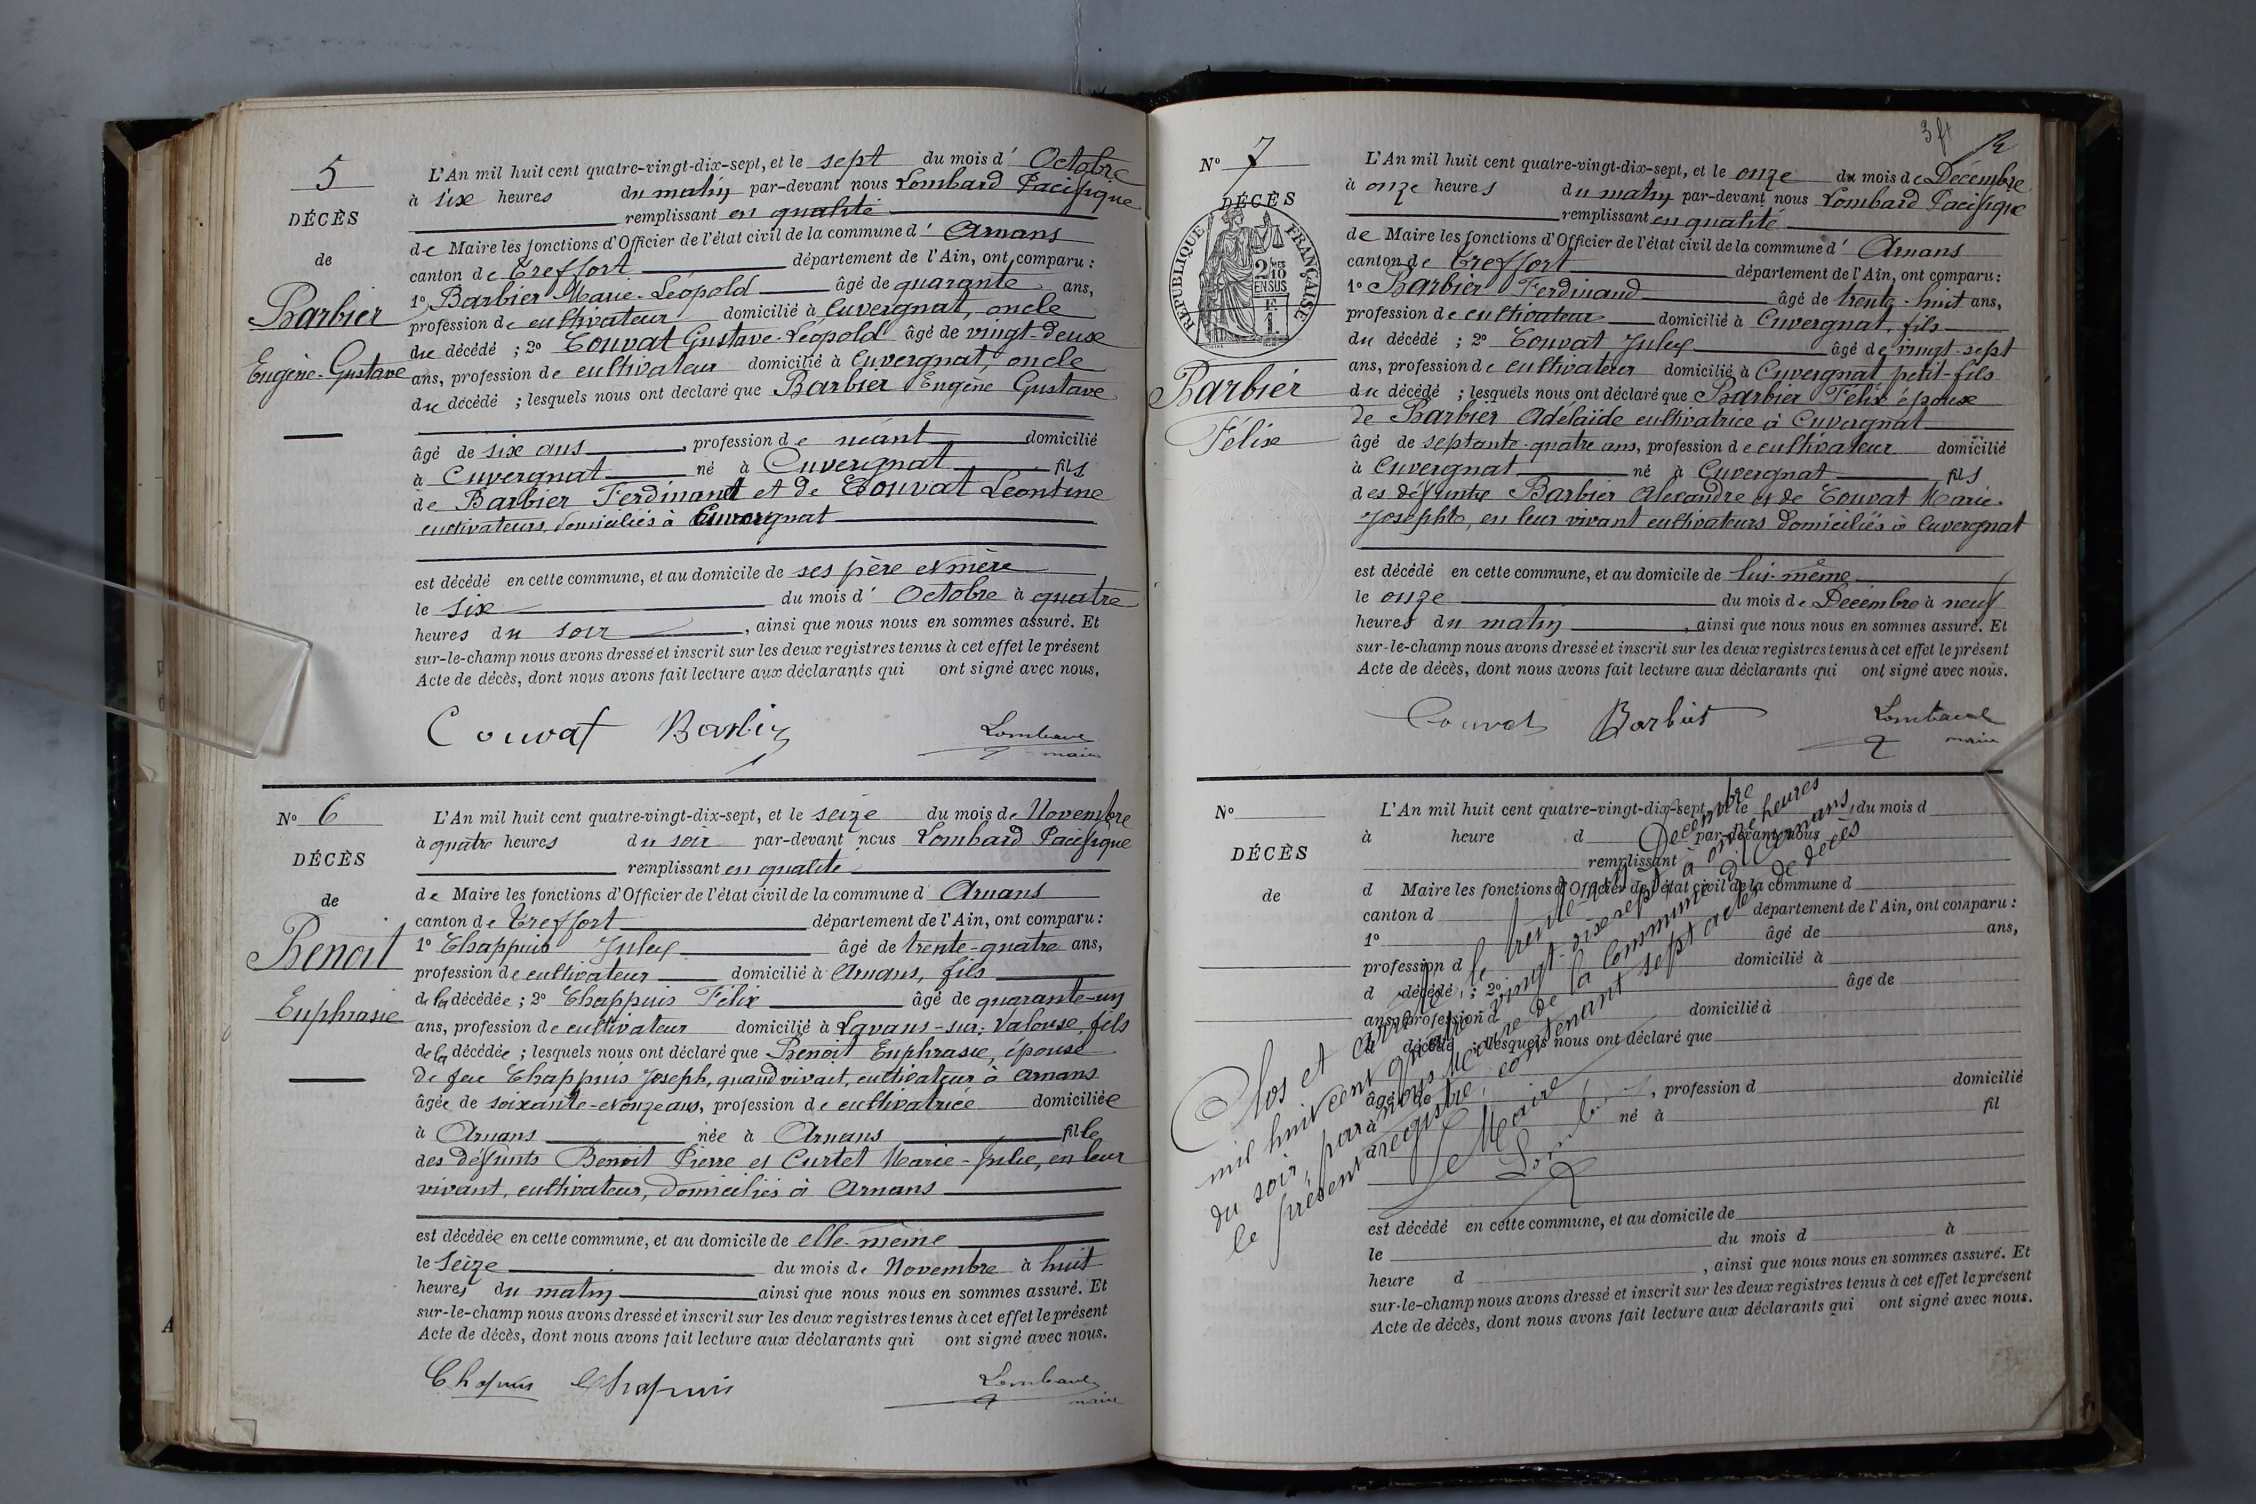 5
DÉCÈS
de
Barbier
Eugène-Gustave
L'An mil huit cent quatre-vingt-dix-sept, et le sept du mois d' Octobre
à six heures du matin par-devant nous Lombard Pacifique
remplissant en qualité
de Maire les fonctions d'Officier de l'état civil de la commune d' Arnans
canton de Treffort département de l'Ain, ont comparu :
1° Barbier Marie-Léopold âgé de quarante ans,
profession de cultivateur domicilié à Cuvergnat, oncle
du décédé ; 2° Couvat Gustave-Léopold âgé de vingt-deux
ans, profession de cultivateur domicilié à Cuvergnat, oncle
du décédé ; lesquels nous ont déclaré que Barbier Eugène Gustave
âgé de six ans, profession de néant domicilié
à Cuvergnat né à Cuvergnat fils
de Barbier Ferdinand et de Couvat Léontine
cultivateurs, domiciliés à Cuvergnat
est décédé en cette commune, et au domicile de ses père et mère
le six du mois d' Octobre à quatre
heures du soir, ainsi que nous nous en sommes assuré. Et
sur-le-champ nous avons dressé et inscrit sur les deux registres tenus à cet effet le présent
Acte de décès, dont nous avons fait lecture aux déclarants qui ont signé avec nous.
Couvat Barbier Lombard
maire
N° 6
DÉCÈS
de
Benoit
Euphrasie
L'An mil huit cent quatre-vingt-dix-sept, et le seize du mois de Novembre
à quatre heures du soir par-devant nous Lombard Pacifique
remplissant en qualité
de Maire les fonctions d'Officier de l'état civil de la commune d' Arnans
canton de Treffort département de l'Ain, ont comparu :
1° Chappuis Jules âgé de trente-quatre ans,
profession de cultivateur domicilié à Arnans, fils
de la décédée ; 2° Chappuis Félix âgé de quarante-un
ans, profession de cultivateur domicilié à Lavans-sur-Valouse, fils
de la décédée ; lesquels nous ont déclaré que Benoit Euphrasie, épouse
de feu Chappuis Joseph, quand vivait, cultivateur à Arnans
âgée de soixante-et onze ans, profession de cultivatrice domiciliée
à Arnans née à Arnans fille
des défunts Benoit Pierre et Curtet Marie-Julie, en leur
vivant, cultivateurs, domiciliés à Arnans
est décédée en cette commune, et au domicile de elle-même
le seize du mois de Novembre à huit
heures du matin ainsi que nous nous en sommes assuré. Et
sur-le-champ nous avons dressé et inscrit sur les deux registres tenus à cet effet le présent
Acte de décès, dont nous avons fait lecture aux déclarants qui ont signé avec nous.
Chapuis Chapuis Lombard
maire
3 ft
N° 7
DÉCÈS
RÉPUBLIQUE FRANÇAISE
2/10 EN SUS
Barbier
Félix
L'An mil huit cent quatre-vingt-dix-sept, et le onze du mois de Décembre
à onze heures du matin par-devant nous Lombard Pacifique
remplissant en qualité
de Maire les fonctions d'Officier de l'état civil de la commune d' Arnans
canton de Treffort département de l'Ain, ont comparu :
1° Barbier Ferdinand âgé de trente-huit ans,
profession de cultivateur domicilié à Cuvergnat, fils
du décédé ; 2° Couvat Jules âgé de vingt-sept
ans, profession de cultivateur domicilié à Cuvergnat petit-fils
du décédé ; lesquels nous ont déclaré que Barbier Félix époux
de Barbier Adélaïde cultivatrice à Cuvergnat
âgé de septante-quatre ans, profession de cultivateur domicilié
à Cuvergnat né à Cuvergnat fils
des défunts Barbier Alexandre et de Couvat Marie-
Josephte, en leur vivant cultivateurs domiciliés à Cuvergnat
est décédé en cette commune, et au domicile de lui-même
le onze du mois de Décembre à neuf
heures du matin, ainsi que nous nous en sommes assuré. Et
sur-le-champ nous avons dressé et inscrit sur les deux registres tenus à cet effet le présent
Acte de décès, dont nous avons fait lecture aux déclarants qui ont signé avec nous.
Couvat Barbier Lombard
maire
N°
DÉCÈS
de
L'An mil huit cent quatre-vingt-dix-sept, et le du mois d
à heure d par-devant nous
remplissant
d Maire les fonctions d'Officier de l'état civil de la commune d
canton d département de l'Ain, ont comparu :
1° âgé de ans,
profession d domicilié à
d décédé ; 2° âgé de
ans, profession d domicilié à
d décédé ; lesquels nous ont déclaré que
âgé de , profession d domicilié
à né à fil
est décédé en cette commune, et au domicile de
le du mois d à
heure d , ainsi que nous nous en sommes assuré. Et
sur-le-champ nous avons dressé et inscrit sur les deux registres tenus à cet effet le présent
Acte de décès, dont nous avons fait lecture aux déclarants qui ont signé avec nous.
Clos et arrêté le trente et un Décembre
mil huit cent quatre-vingt-dix-sept à onze heures
du soir, par nous Maire de la Commune d'Arnans,
le présent registre, contenant sept actes de décès
Le Maire
Lombard